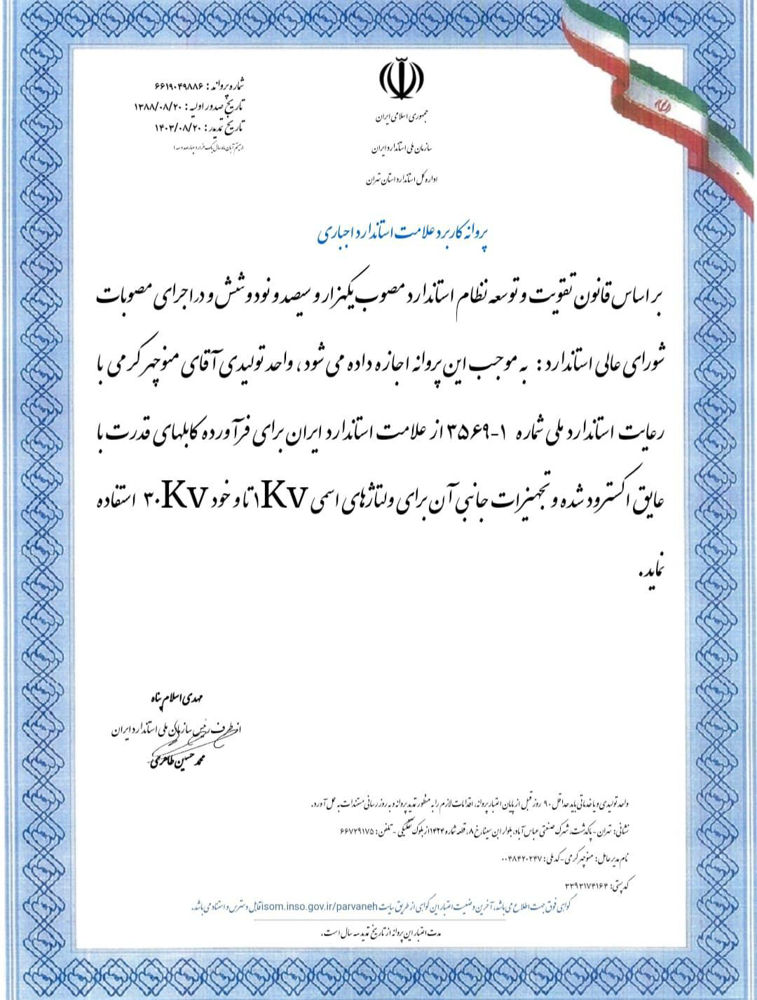 جمهوری اسلامی ایران
سازمان ملی استاندارد ایران
اداره کل استاندارد استان تهران
شماره پروانه : ۶۶۱۹۰۴۹۸۸۶
تاریخ صدور اولیه : ۱۳۸۸/۰۸/۲۰
تاریخ تمدید : ۱۴۰۳/۰۸/۲۰
پروانه کاربرد علامت استاندارد اجباری
بر اساس قانون تقویت و توسعه نظام استاندارد مصوب یکهزار و سیصد و نود و شش و در اجرای مصوبات
شورای عالی استاندارد : به موجب این پروانه اجازه داده می شود ، واحد تولیدی آقای منوچهر کرمی با
رعایت استاندارد ملی شماره ۱-۳۵۶۹ از علامت استاندارد ایران برای فرآورده کابلهای قدرت با
عایق اکسترود شده و تجهیزات جانبی آن برای ولتاژهای اسمی ۱Kv تا و خود ۳۰Kv استفاده
نماید.
مهدی اسلام پناه
از طرف رئیس سازمان ملی استاندارد ایران
محمد حسین طاهری
واحد تولیدی و یا خدماتی باید حداقل ۹۰ روز قبل از پایان اعتبار پروانه، اقدامات لازم را به منظور تمدید پروانه و به روز رسانی مستندات به عمل آورد.
نشانی: تهران - پاکدشت، شهرک صنعتی عباس آباد، بلوار ابن سینا، خ ۸، قطعه شماره ۱۴۲۴ از بلوک تفکیکی - تلفن: ۶۶۷۲۹۱۷۵
نام مدیر عامل: منوچهر کرمی - کد ملی: ۰۰۴۸۴۲۰۲۴۷
کد پستی: ۳۳۹۳۱۷۴۱۶۴
گواهی فوق جهت اطلاع می باشد. آخرین وضعیت اعتبار این گواهی از طریق سایت isom.inso.gov.ir/parvaneh قابل دسترس و استناد می باشد.
مدت اعتبار این پروانه از تاریخ تمدید سه سال است.